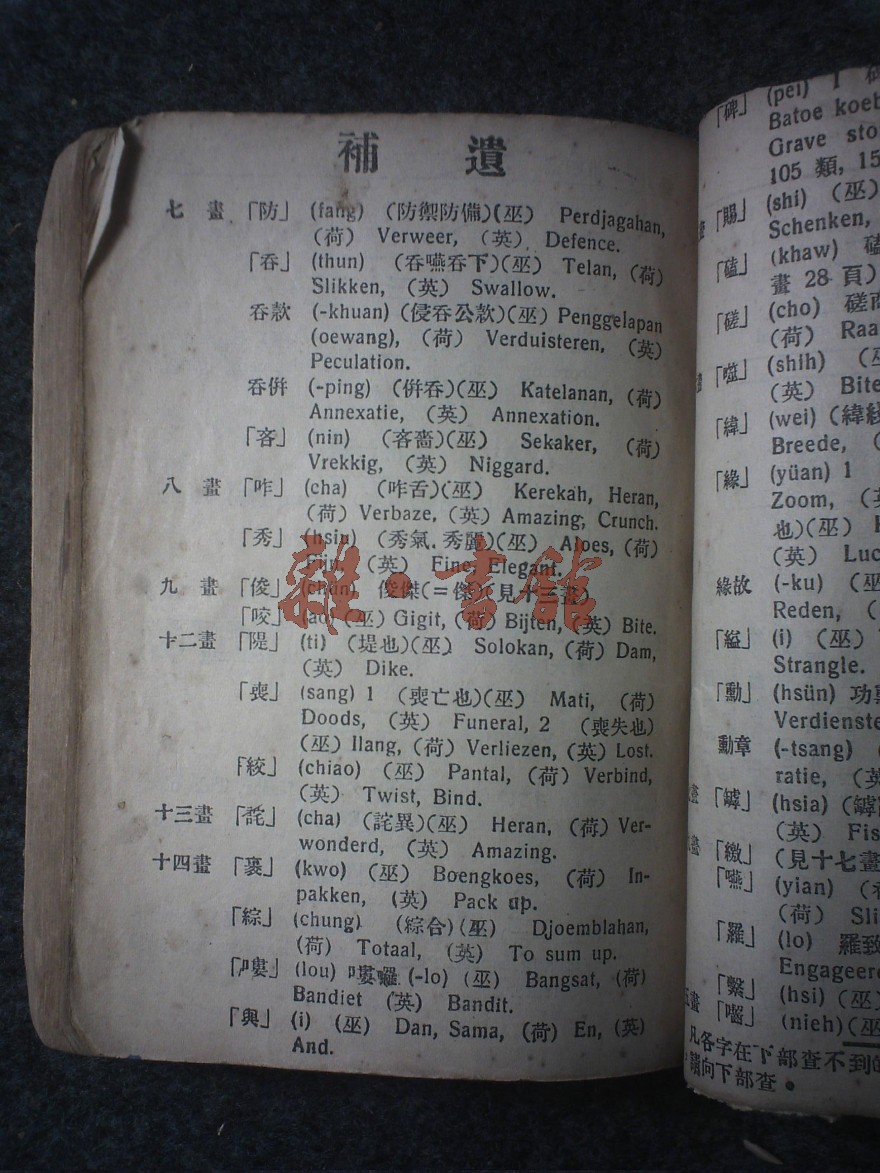 補 遺
七 畫 「防」 (fang) (防禦防備)(巫) Perdjagahan,
(荷) Verweer, (英) Defence.
「吞」 (thun) (吞嚥吞下)(巫) Telan, (荷)
Slikken, (英) Swallow.
吞款 (-khuan) (侵吞公款)(巫) Penggelapan
(oewang), (荷) Verduisteren, (英)
Peculation.
吞併 (-ping) (併吞)(巫) Katelanan, (荷)
Annexatie, (英) Annexation.
「吝」 (nin) (吝嗇)(巫) Sekaker, (荷)
Vrekkig, (英) Niggard.
八 畫 「咋」 (cha) (咋舌)(巫) Kerekah, Heran,
(荷) Verbaze, (英) Amazing; Crunch.
「秀」 (hsiu) (秀氣.秀麗)(巫) Aloes, (荷)
Fijn, (英) Fine, Elegant.
九 畫 「俊」 (chün) 俊傑(=傑)(見十三畫)
「咬」 (ao) (巫) Gigit, (荷) Bijten, (英) Bite.
十二畫 「隄」 (ti) (堤也)(巫) Solokan, (荷) Dam,
(英) Dike.
「喪」 (sang) 1 (喪亡也)(巫) Mati, (荷)
Doods, (英) Funeral, 2 (喪失也)
(巫) Ilang, (荷) Verliezen, (英) Lost.
「絞」 (chiao) (巫) Pantal, (荷) Verbind,
(英) Twist, Bind.
十三畫 「詫」 (cha) (詫異)(巫) Heran, (荷) Ver-
wonderd, (英) Amazing.
十四畫 「裹」 (kwo) (巫) Boengkoes, (荷) In-
pakken, (英) Pack up.
「綜」 (chung) (綜合)(巫) Djoemblahan,
(荷) Totaal, (英) To sum up.
「嘍」 (lou) 嘍囉 (-lo) (巫) Bangsat, (荷)
Bandiet (英) Bandit.
「與」 (i) (巫) Dan, Sama, (荷) En, (英)
And.
雜·書館
「碑」 (pei) 1
Batoe
Grave
105 類,
「賜」 (shi) (巫)
Schenken,
「磕」 (khaw)
畫 28 頁)
「磋」 (cho)
(荷)
「噬」 (shih)
(英) Bite
「緯」 (wei)
Breede,
「緣」 (yüan) 1
Zoom,
也)(巫)
(英)
緣故 (-ku)
Reden,
「縊」 (i) (巫)
Strangle.
「勳」 (hsün)
勳章 (-tsang)
「罅」 (hsia)
(英)
「繳」 (見十七畫
「嚥」 (yian)
(荷)
「羅」 (lo) 羅致
「繫」 (hsi) (巫)
「囓」 (nieh)(巫)
凡各字在下部查不到
請向下部查。